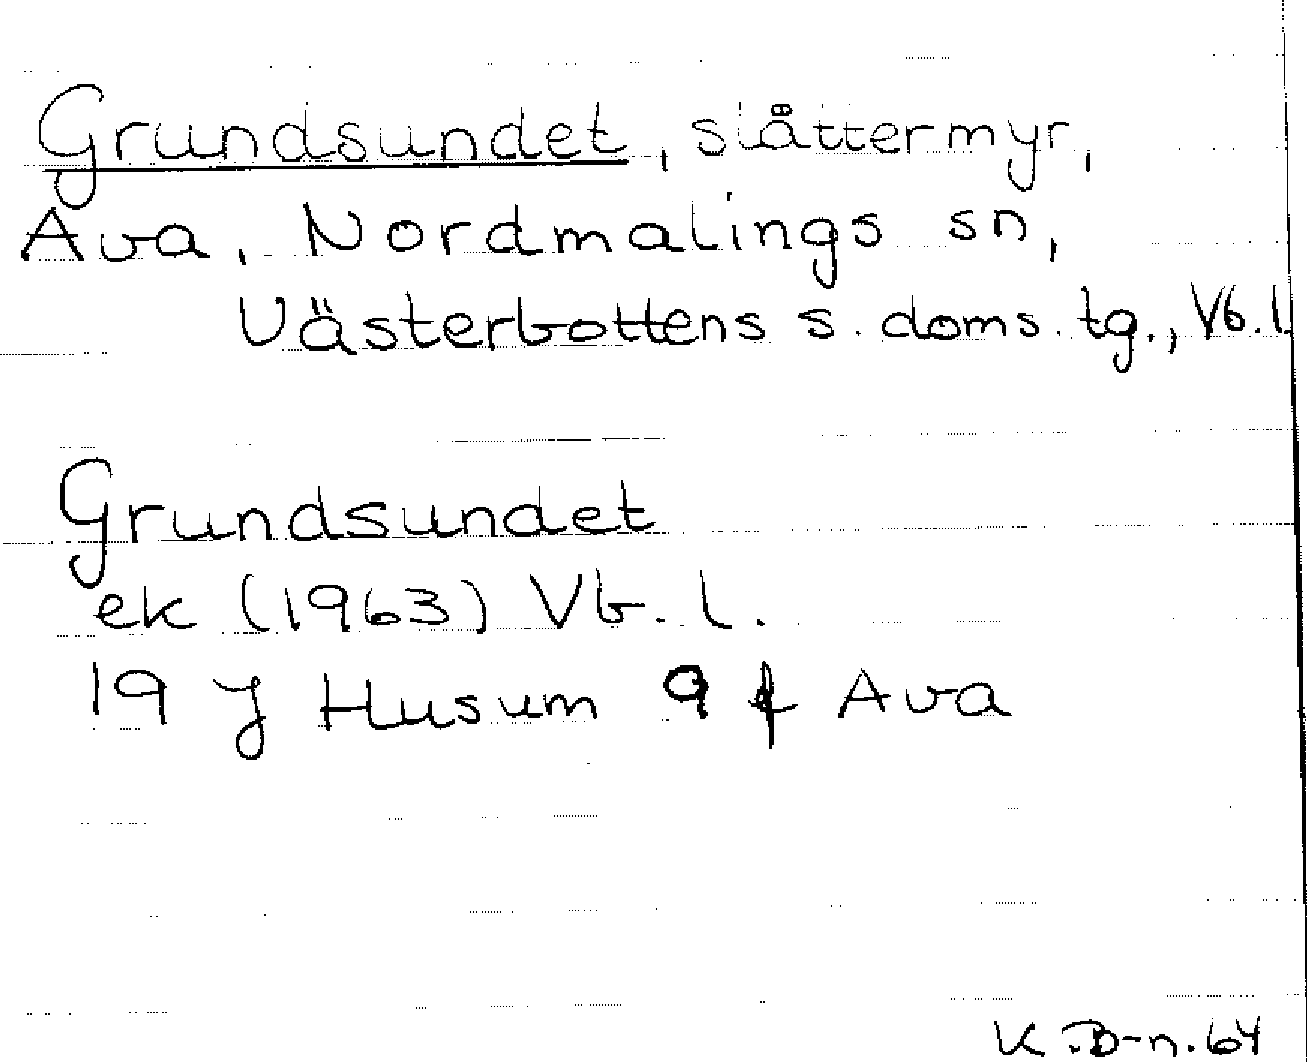 Grundsundet, slåttermyr,
Ava, Nordmalings sn,
Västerbottens s. doms. tg., Vb. l.
Grundsundet
ek (1963) Vb. l.
19 J Husum 9 f Ava
K.B-n. 64